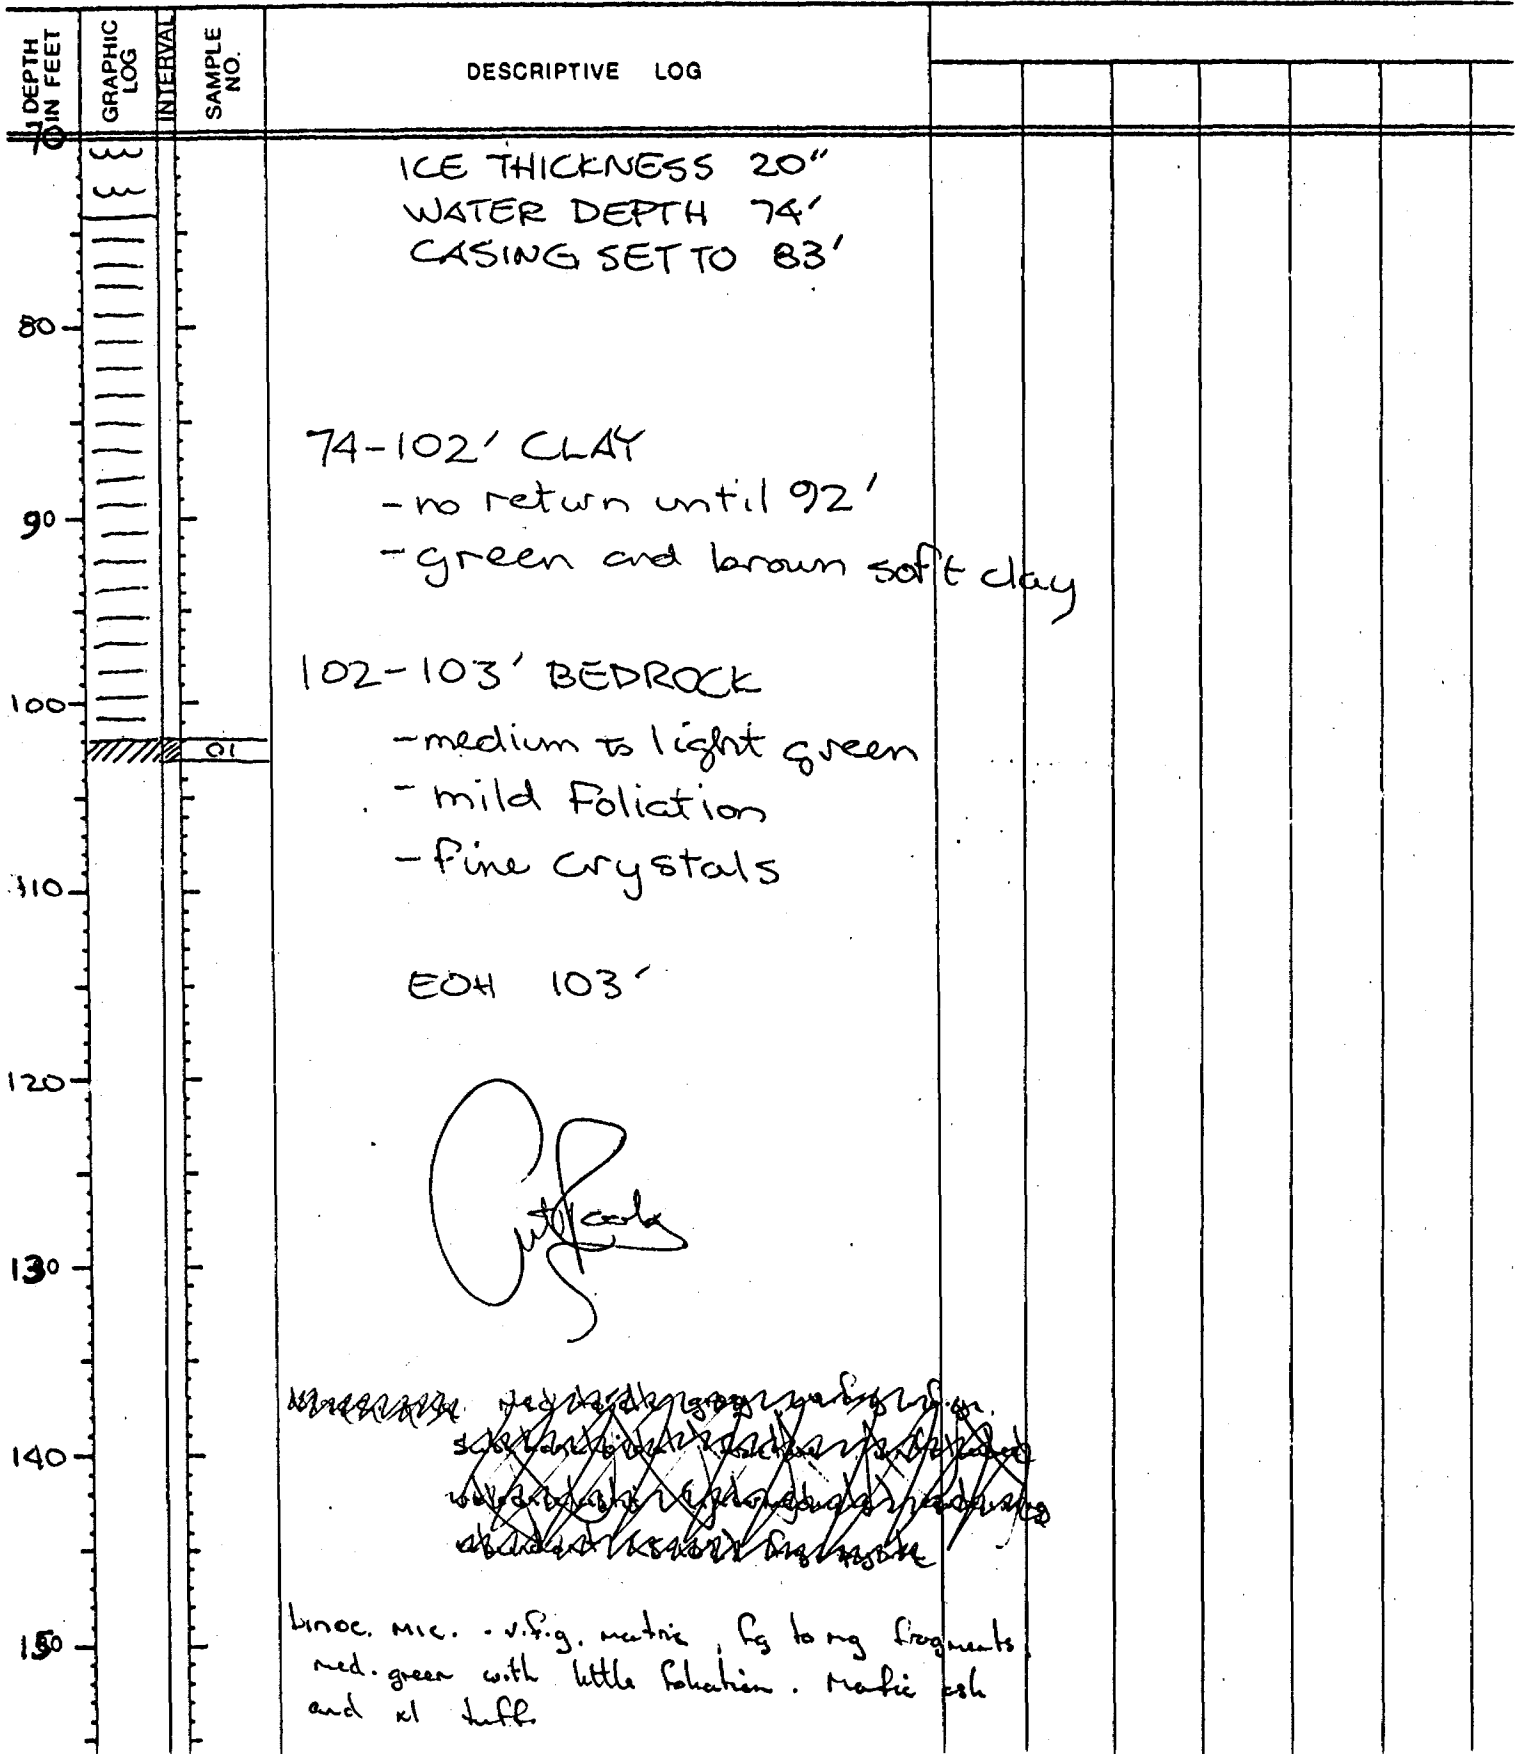 DEPTH IN FEET
GRAPHIC LOG
INTERVAL
SAMPLE NO.
DESCRIPTIVE LOG
70
ICE THICKNESS 20"
WATER DEPTH 74'
CASING SET TO 83'
80
74-102' CLAY
- no return until 92'
90
- green and brown soft clay
102-103' BEDROCK
100
- medium to light green
01
- mild Foliation
- fine crystals
110
EOH 103'
120
130
140
binoc. mic. - v.f.g. matrix, fg to mg fragments
150
med. green with little foliation. Mafic ash
and xl tuff.